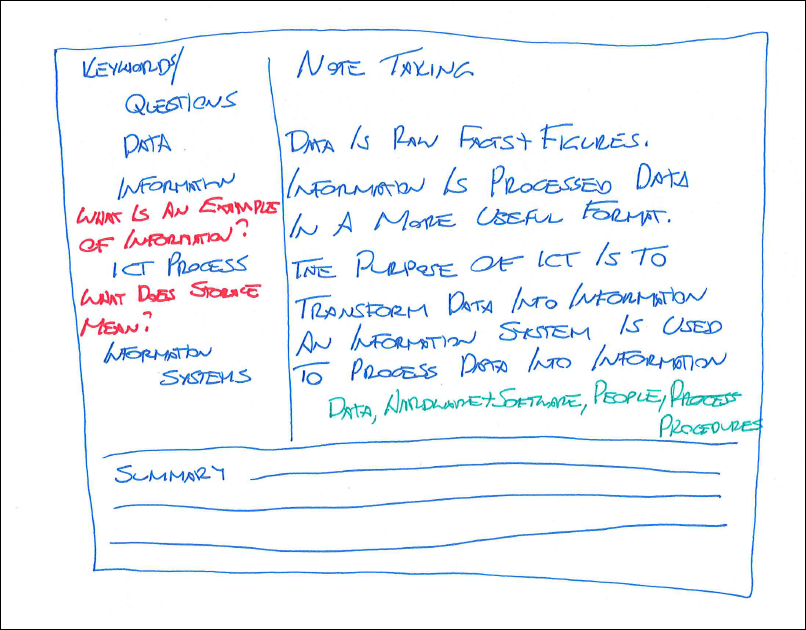 KEYWORDS/
QUESTIONS
DATA
INFORMATION
WHAT IS AN EXAMPLE
OF INFORMATION?
ICT PROCESS
WHAT DOES STORAGE
MEAN?
INFORMATION
SYSTEMS
NOTE TAKING
DATA IS RAW FACTS+FIGURES.
INFORMATION IS PROCESSED DATA
IN A MORE USEFUL FORMAT.
THE PURPOSE OF ICT IS TO
TRANSFORM DATA INTO INFORMATION
AN INFORMATION SYSTEM IS USED
TO PROCESS DATA INTO INFORMATION
DATA, HARDWARE+SOFTWARE, PEOPLE, PROCESS
PROCEDURES
SUMMARY